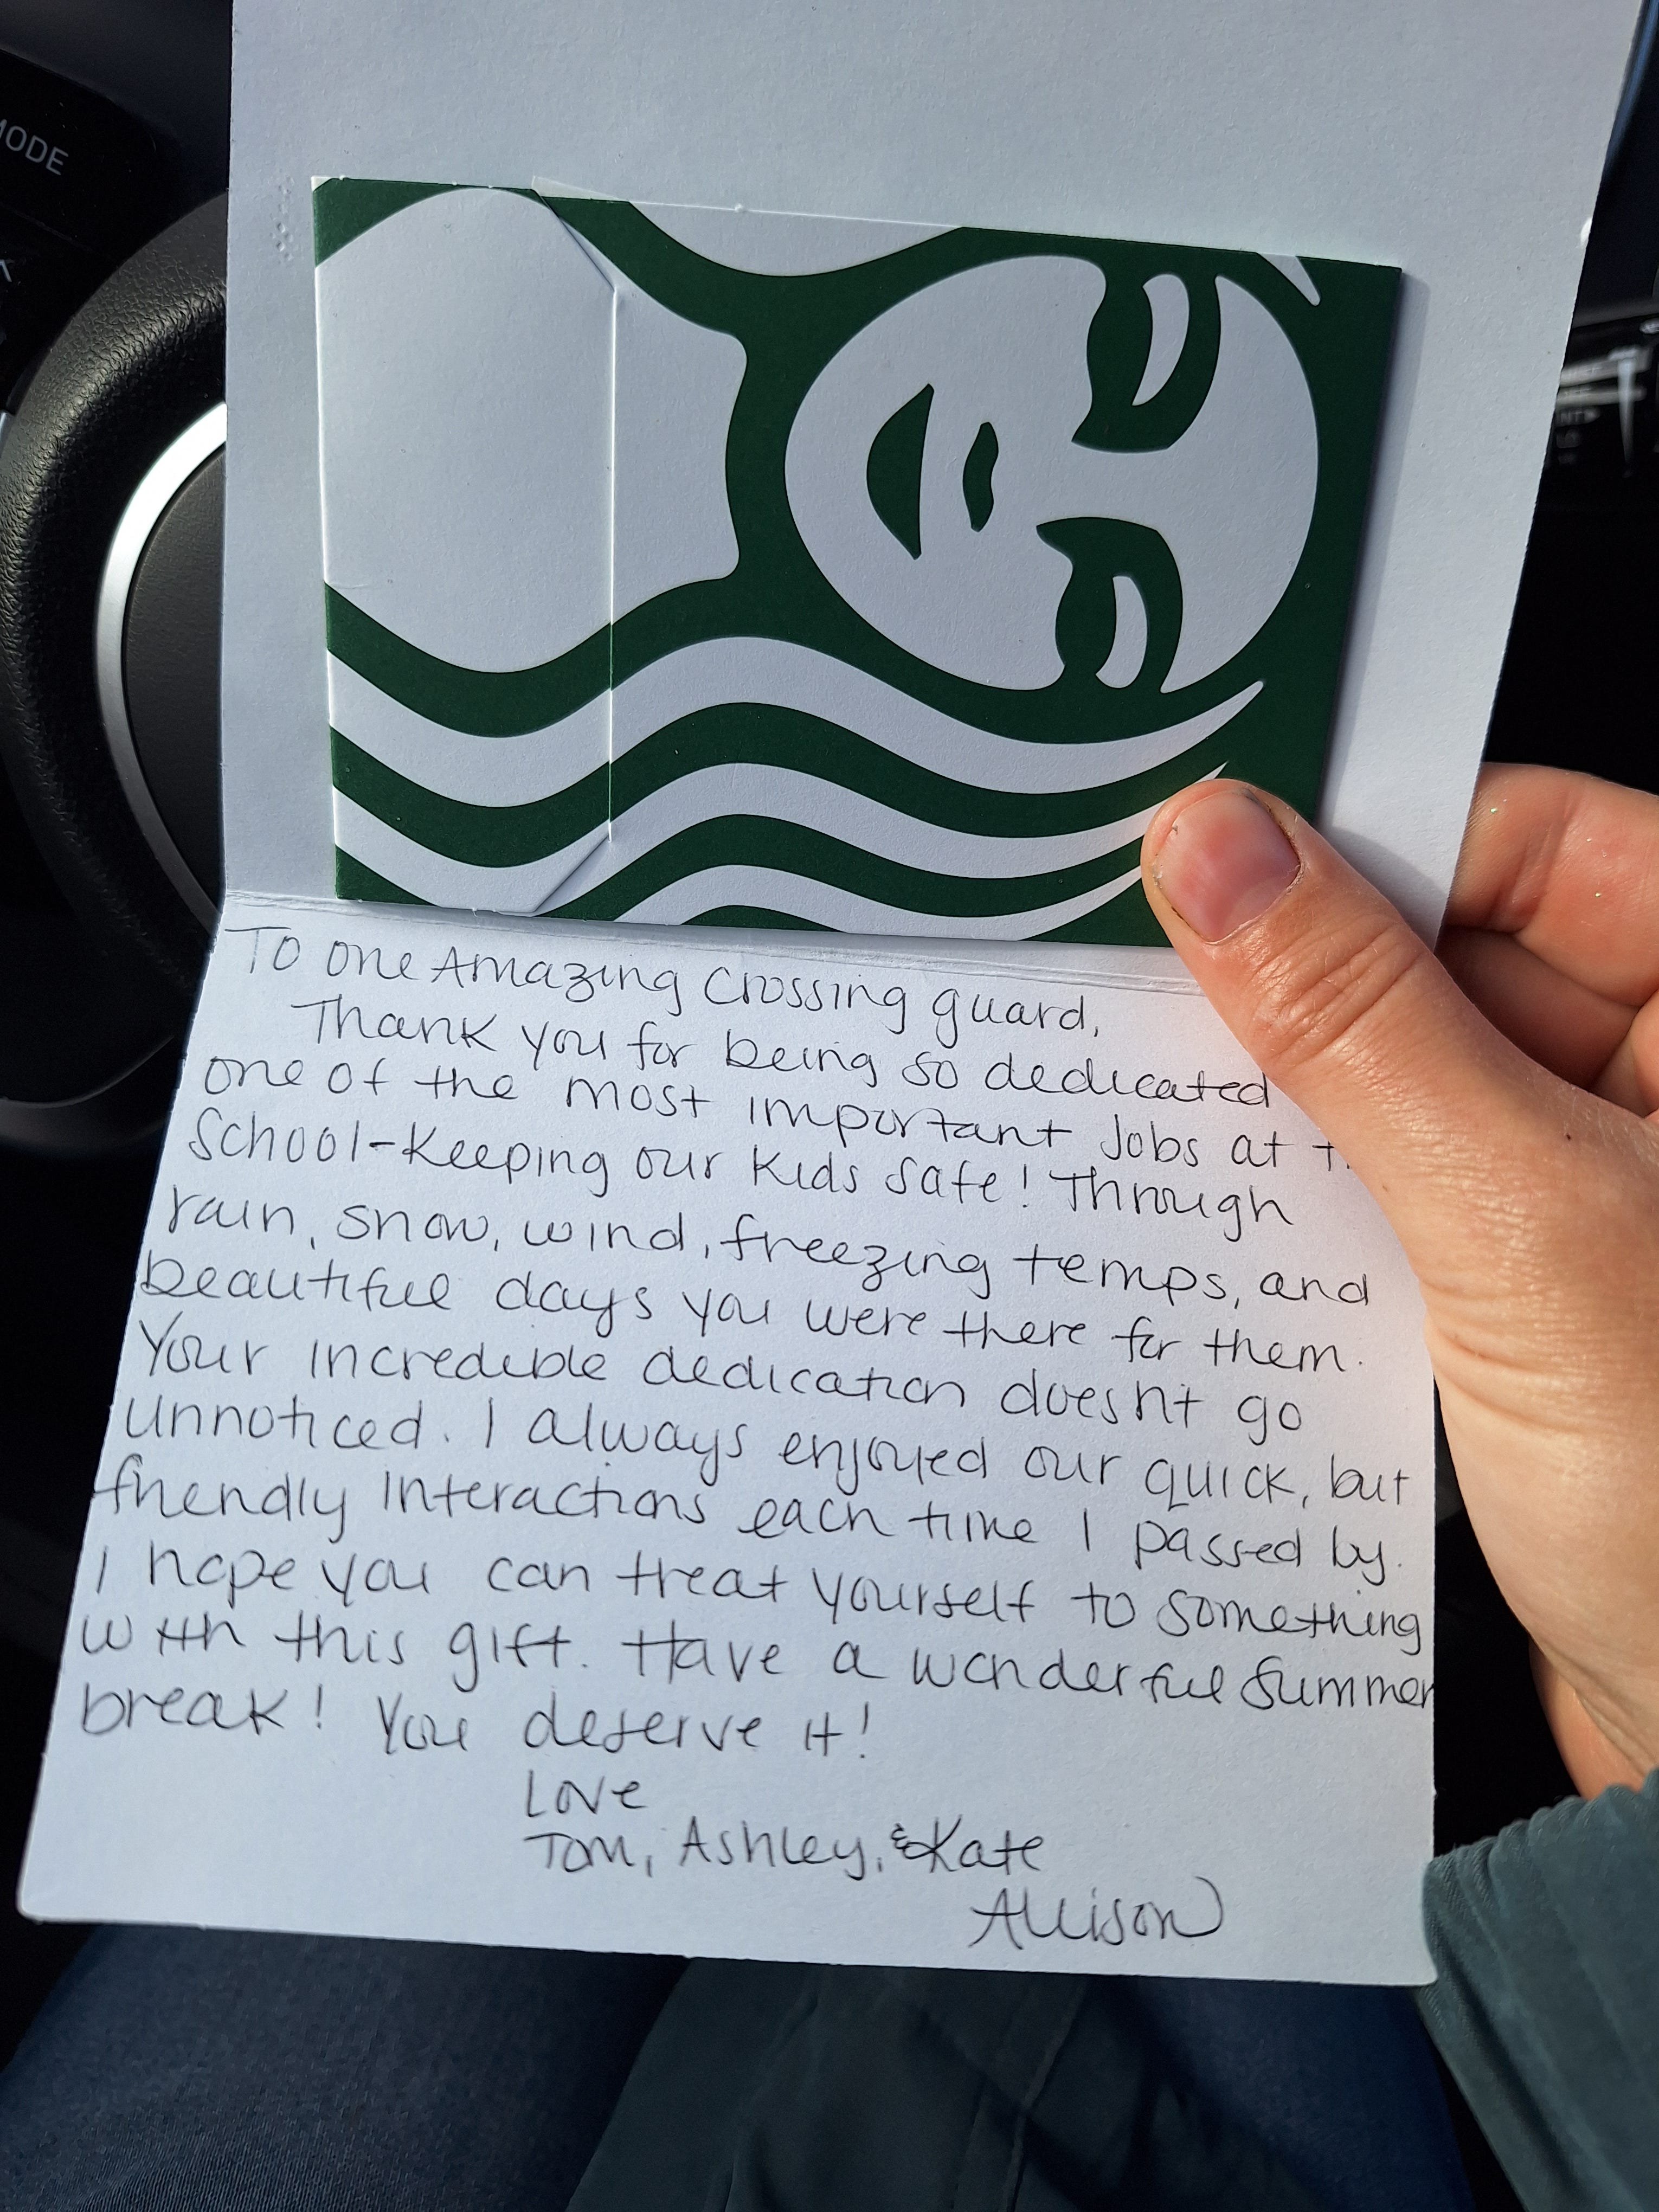 MODE
To one Amazing Crossing guard,
Thank you for being so dedicated
one of the most important Jobs at
School-Keeping our Kids safe! Through
rain, snow, wind, freezing temps, and
beautiful days you were there for them.
Your incredible dedication doesn't go
unnoticed. I always enjoyed our quick, but
friendly interactions each time I passed by.
I hope you can treat yourself to something
with this gift. Have a wonderful Summer
break! You deserve it!
Love
Tom, Ashley, & Kate
Allison